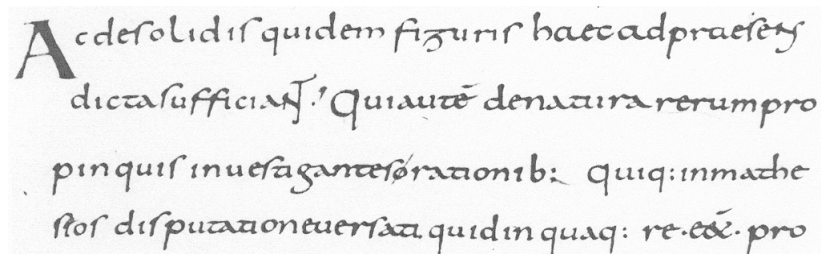 Ac de solidis quidem figuris haec ad praesens
dicta sufficiant. Qui autē de natura rerum pro
pinquis inuestigantes orationib: quiq: in mathe
sios disputatione uersati quid in quaq: re. eēt. pro